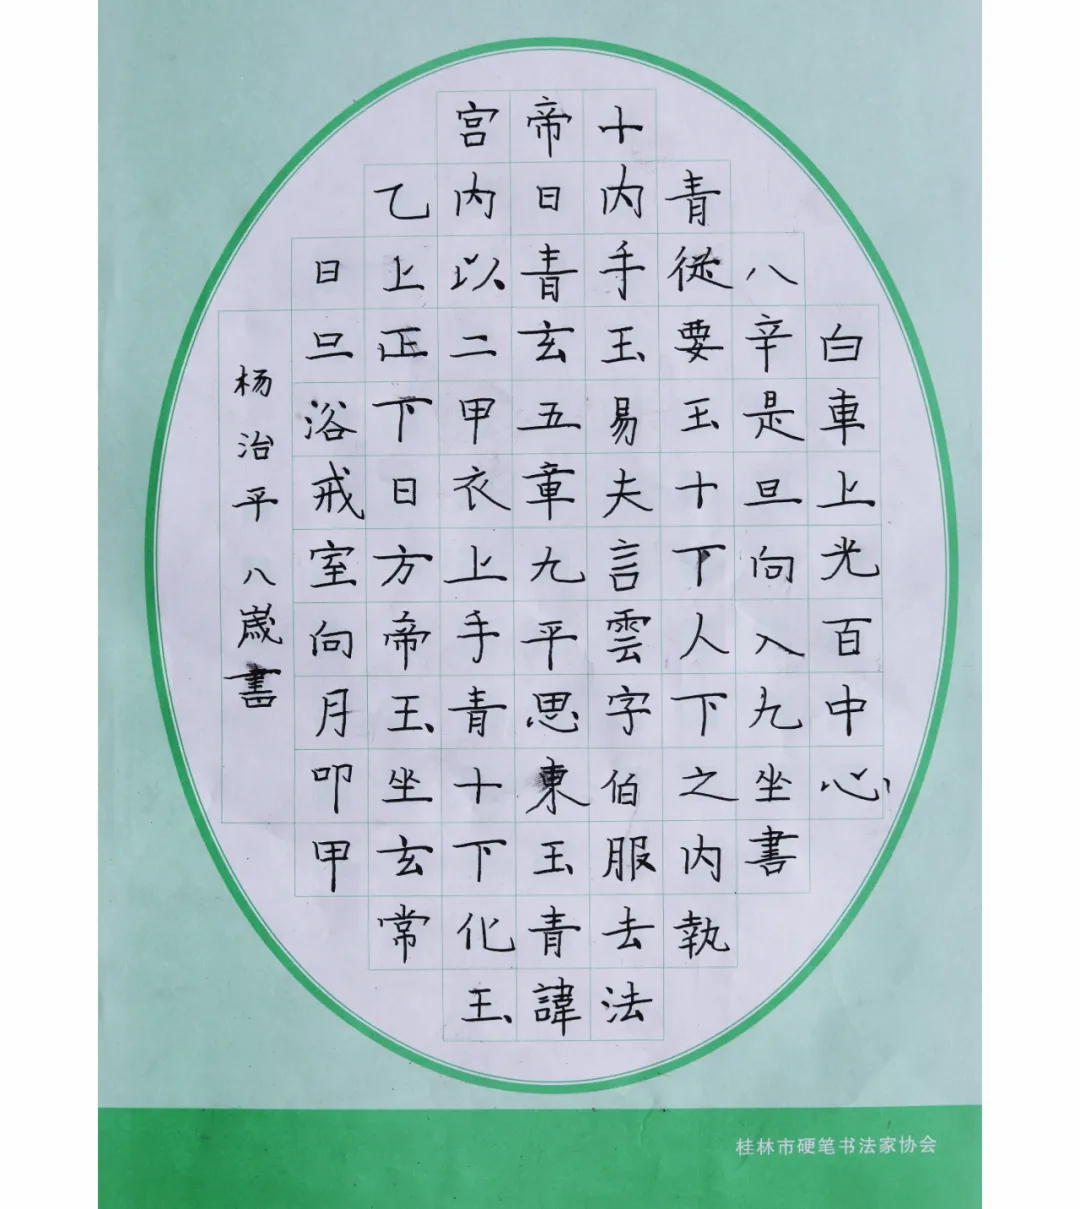 白車上光百中心
八辛是旦向入九坐書
青從要玉十下人下之内執
十内手玉易夫言雲字伯服去法
帝日青玄五章九平思東玉青諱
宫内以二甲衣上手青十下化玉
乙上正下日方帝玉坐玄常
日旦浴戒室向月叩甲
杨治平八歲書
桂林市硬笔书法家协会